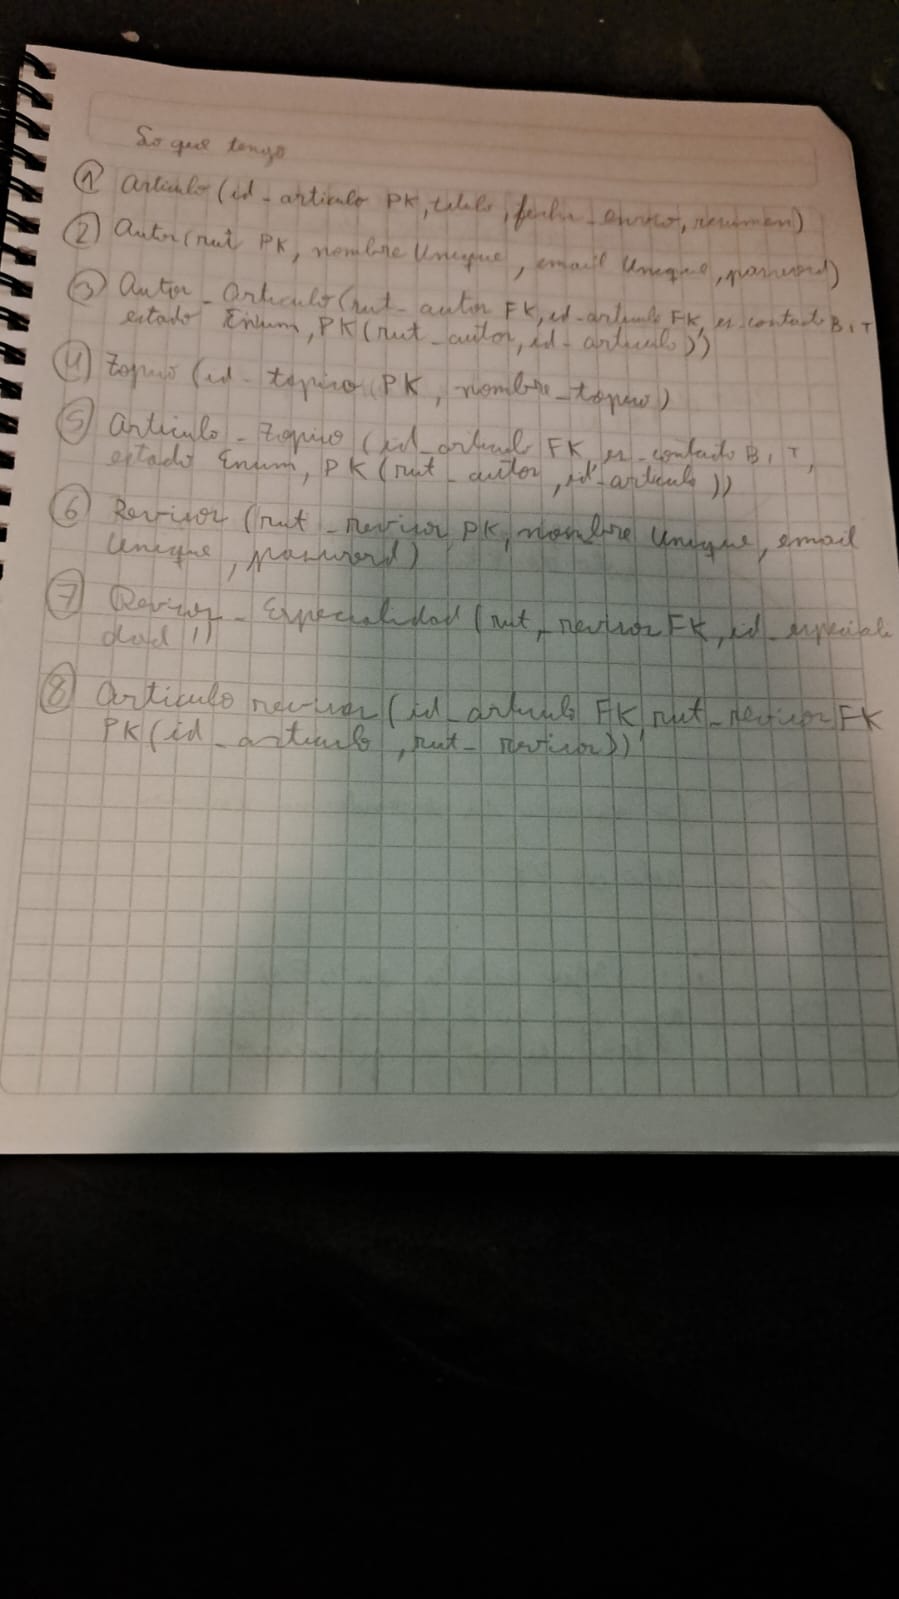 Lo que tengo
① Artículo (id_articulo PK, titulo, fecha_envio, resumen)
② Autor (rut PK, nombre Unique, email Unique, password)
③ Autor_Articulo (rut_autor FK, id_articulo FK, es_contacto BIT
estado Enum, PK (rut_autor, id_articulo))
④ Topico (id_topico PK, nombre_topico)
⑤ Articulo_Topico (id_articulo FK, es_contacto BIT,
estado Enum, PK (rut_autor, id_articulo))
⑥ Revisor (rut_revisor PK, nombre Unique, email
Unique, password)
⑦ Revisor_Especialidad (rut_revisor FK, id_especiali
dad ))
⑧ Articulo revisor (id_articulo FK, rut_revisor FK
PK (id_articulo, rut_revisor))